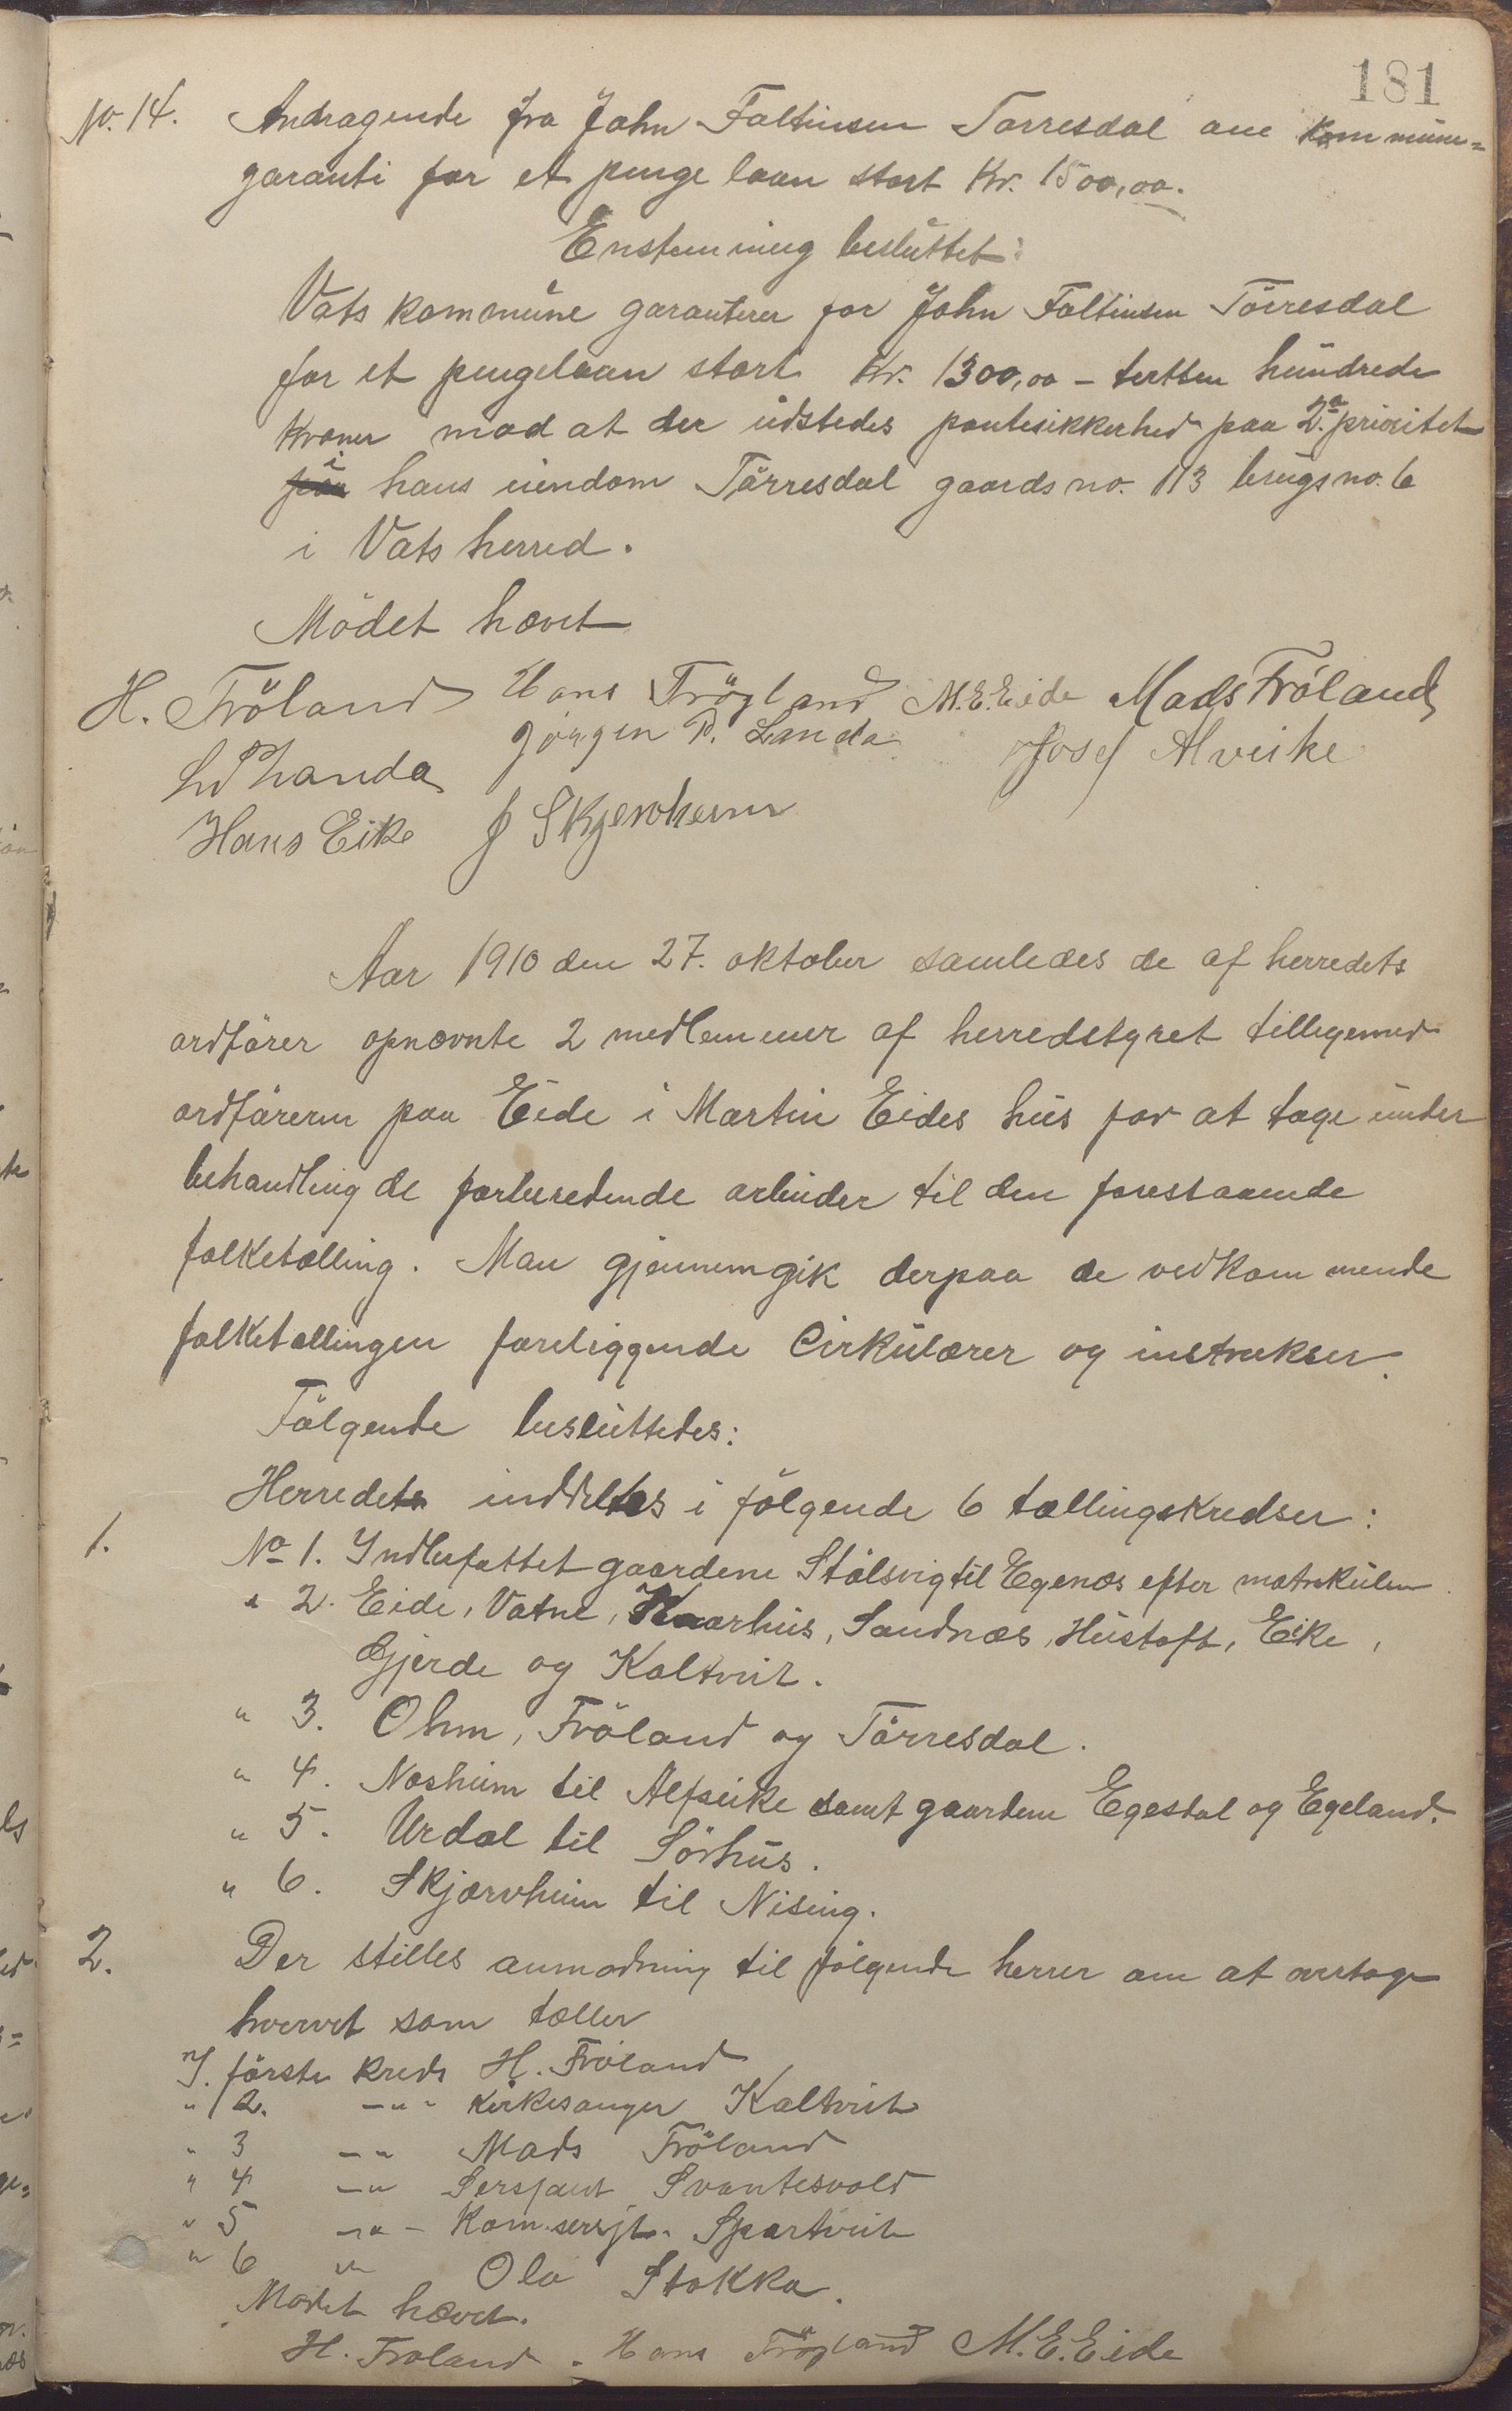 181
No. 14. Andragende fra John Faltinsen Törresdal om kommune=
garanti for et penge laan stort Kr. 1500,00.
Enstemmig besluttet:
Vats kommune garanterer for John Faltinsen Törresdal
for et pengelaan stort Kr. 1300,00 – tretten hundrede
Kroner mod at der udstedes pantesikkerhed paa 2den prioritet
i hans eiendom Törresdal gaards no. 113 brugs no. 6
i Vats herred.
Mödet hævet
H. Fröland Hans Frögland M.E. Eide Mads Fröland
Jörgen P. Landa Josef Alveike
Landa
Hans Eike J Skjerveheim
Aar 1910 den 27. oktober samledes de af herredets
ordförer opnævnte 2 medlemmer af herredstyret tilligemed
ordföreren paa Eide i Martin Eides hus for at tage under
behandling de forberedende arbeider til den forestaaende
folketælling. Man gjennemgik derpaa de vedkommende
folketællingen foreliggende Cirkulærer og instrukser.
Fölgende besluttedes:
Herredet inddeltes i fölgende 6 tællingskredser:
1. No 1. Indbefattet gaardene Stölsvig til Egenæs efter matrikulen.
" 2. Eide, Vatne, Kaarhus, Sandnæs, Hustoft, Eike,
Gjerde og Kaltveit.
" 3. Ohm, Fröland og Törresdal.
" 4. Næsheim til Alfseike samt gaardene Egesdal og Egeland.
" 5. Urdal til Sörhus.
" 6. Skjærvheim til Nising.
2. Der stilles anmodning til fölgende herrer om at overtage
hvervet som tæller
I. förste kreds H. Fröland
" 2. –"– Kirkesanger Kaltveit
" 3 –"– Mads Fröland
" 4 –"– Sersjant Svantesvold
" 5 –"– Kom.sersjt. Spartveit
" 6 " Ola Stakka.
Mödet hævet.
H. Fröland. Hans Frögland M.E. Eide